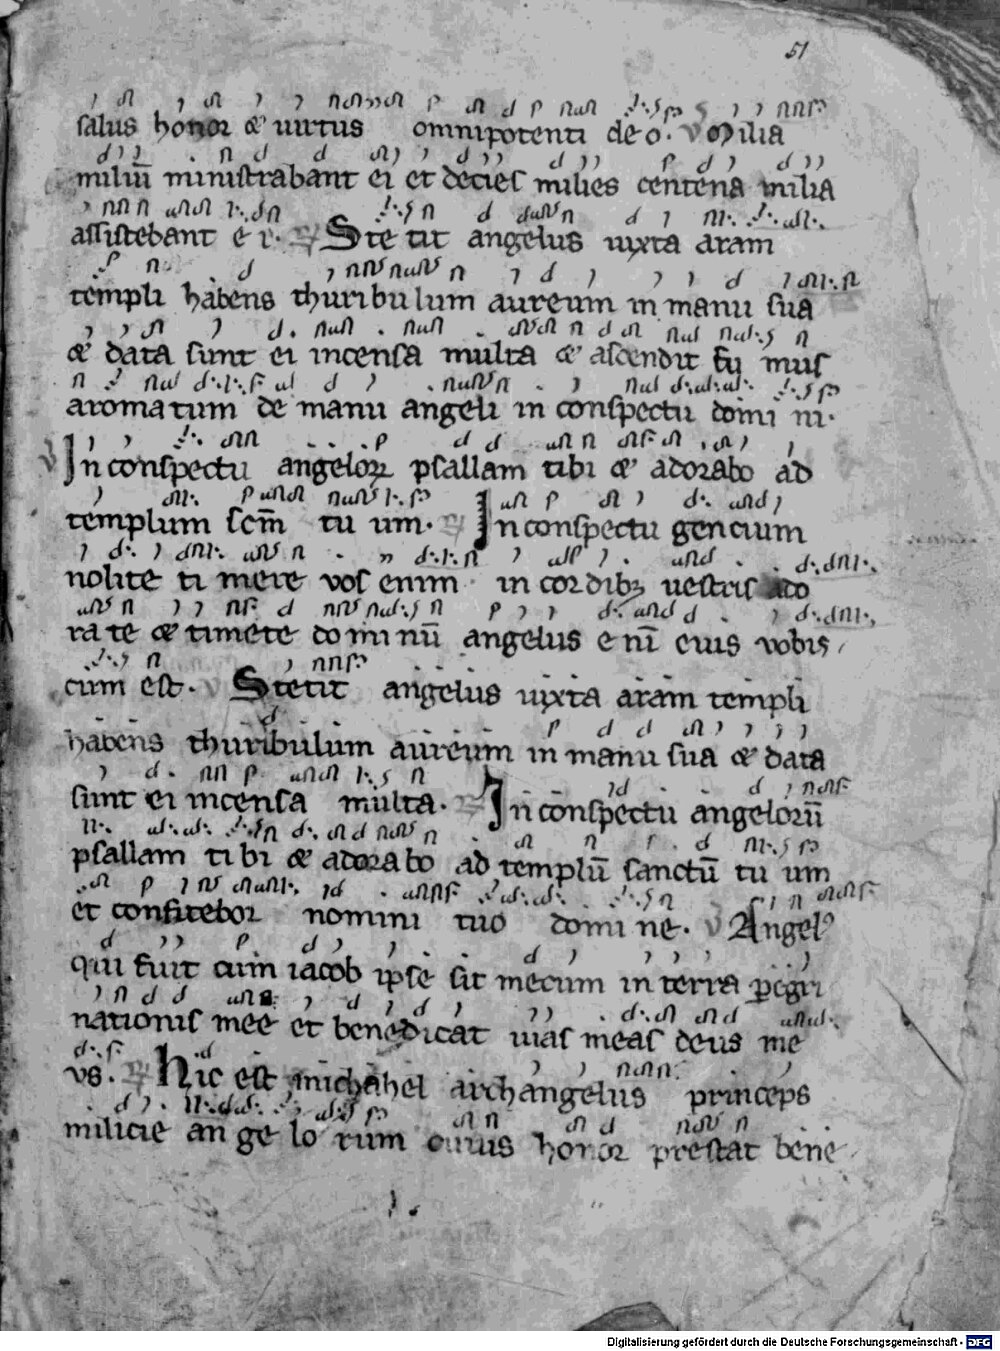 51
salus honor & uirtus omnipotenti deo. V Milia
miliū ministrabant ei et decies milies centena milia
assistebant ei. R Stetit angelus iuxta aram
templi habens thuribulum aureum in manu sua
& data sunt ei incensa multa & ascendit fumus
aromatum de manu angeli in conspectu domini.
V In conspectu angeloꝝ psallam tibi & adorabo ad
templum scm̄ tuum. R In conspectu gencium
nolite timere vos enim in cordibꝫ uestris ado
rate & timete dominū angelus enī eius vobis
cum est. V Stetit angelus iuxta aram templi
habens thuribulum aureum in manu sua & data
sunt ei incensa multa. R In conspectu angelorū
psallam tibi & adorabo ad templū sanctū tuum
et confitebor nomini tuo domine. V Angelꝰ
qui fuit cum iacob ipse sit mecum in terra ꝑegri
nationis mee et benedicat uias meas deus me
us. R Hic est michahel archangelus princeps
milicie angelorum cuius honor prestat bene
Digitalisierung gefördert durch die Deutsche Forschungsgemeinschaft - DFG